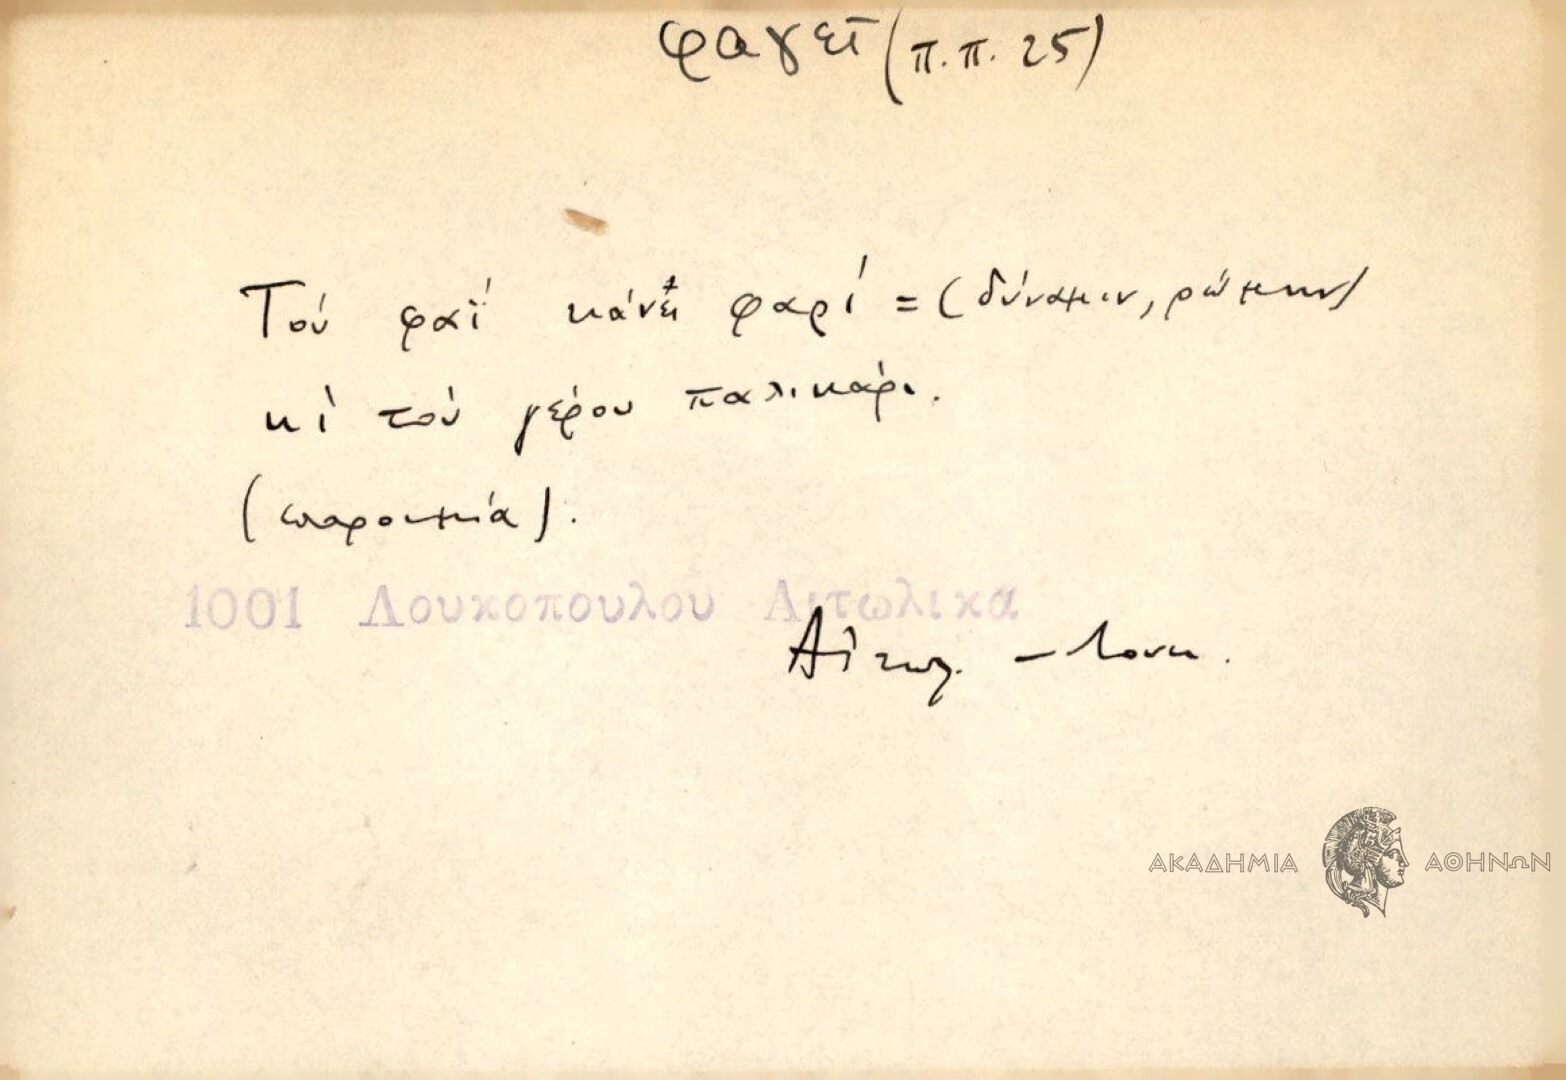 φαγεῖ (π.π. 25)
Τού φαΐ κάνει φαρί = (δύναμιν, ρώμην)
κὶ τού γέρου παλικάρι.
(παροιμία).
1001 Λουκοπουλου Αιτωλικα
Αἰτωλ. – Λουκ.
ΑΚΑΔΗΜΙΑ ΑΘΗΝΩΝ